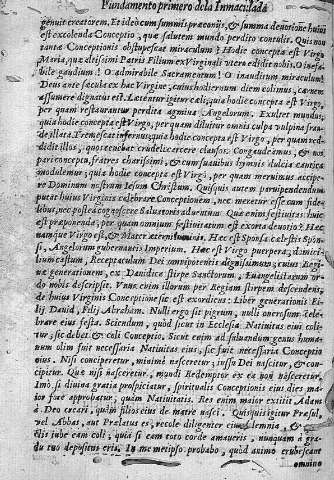 Fundamento primero dela Inmaculada
genuit creatorem. Et ideo cum summis præconijs, & summa deuotione huius
est excolenda Conceptio, quæ salutem mundo perdito contulit. Quis non
tantæ Conceptionis obstupescat miraculum? Hodie concepta est Virgo
Maria, quæ deifici Patris Filium ex Virginali vtero edidit nobis. O inefa-
bile gaudium! O admirabile Sacramentum! O inauditum miraculum!
Deus ante sæcula ex hac Virgine, cuius hodiernum diem colimus, carnem
assumere dignatus est. Lætentur igitur cæli, quia hodie concepta est Virgo,
per quam restaurantur perdita agmina Angelorum. Exultet mundus,
quia hodie concepta est Virgo, per quam diluitur omnis culpa vulpina frau-
de illata. Tremescat infernus, quia hodie concepta est Virgo, per quam red-
didit illos, quos tenebat crudeli carcere clausos. Congaudeamus, & nos
pari concepta, fratres charissimi, & cum suauibus hymnis dulcia cantica
modulemur, quia hodie concepta est Virgo, per quam meruimus accipe-
re Dominum nostrum Iesum Christum. Quisquis autem paruipendendum
putat huius Virginis celebrare Conceptionem, nec meretur esse cum fide-
libus, nec post ea cognoscere Saluatoris aduentum. Quæ enim festiuitas huic
est præponenda, per quam omnium festiuitatum est exorta deuotio? Hæc
namque Virgo est, & Mater excellentissima. Hæc est Sponsa cælestis Spon-
si, Angelorum gubernantis Imperium. Hæc est Virgo puerpera, diuini
lumen castum, Receptaculum Dei omnipotentis dignissimum; cuius Regi-
um generationem, ex Dauidica stirpe Sanctorum, Euangelistarum or-
do nobis descripsit. Vnus enim illorum per Regiam stirpem descendens,
de huius Virginis Conceptione sic est exordicus: Liber generationis Fi-
lij Dauid, Filij Abraham. Nulli ergo sit pigrum, nulli onerosum cele-
brare eius festa. Sciendum, quòd sicut in Ecclesia Natiuitas eius coli-
tur, sic debet & coli Conceptio. Sicut enim ad saluandum genus huma-
num olim fuit necessaria Natiuitas eius, sic fuit necessaria Conceptio
eius. Nisi conciperetur, minimè nasceretur; iussu Dei nascitur, & con-
cipitur. Quæ nisi nasceretur, mundi Redemptor ex ea non nasceretur.
Imò si diuina gratia prospiciatur, spiritualis Conceptionis eius dies ma-
ior fuæ approbatur, quàm Natiuitatis. Res enim maior extitit Adam
à Deo creari, quàm filios eius de matre nasci. Quisquis igitur Præsul,
vel Abbas, aut Prælatus es, recole diligenter eius solemnia, &
alijs iube eam coli; quia si eam toto corde amaueris, nunquam à gra-
du tuo depositus eris. In me metipso probabo, quòd animo erubescant
omnino